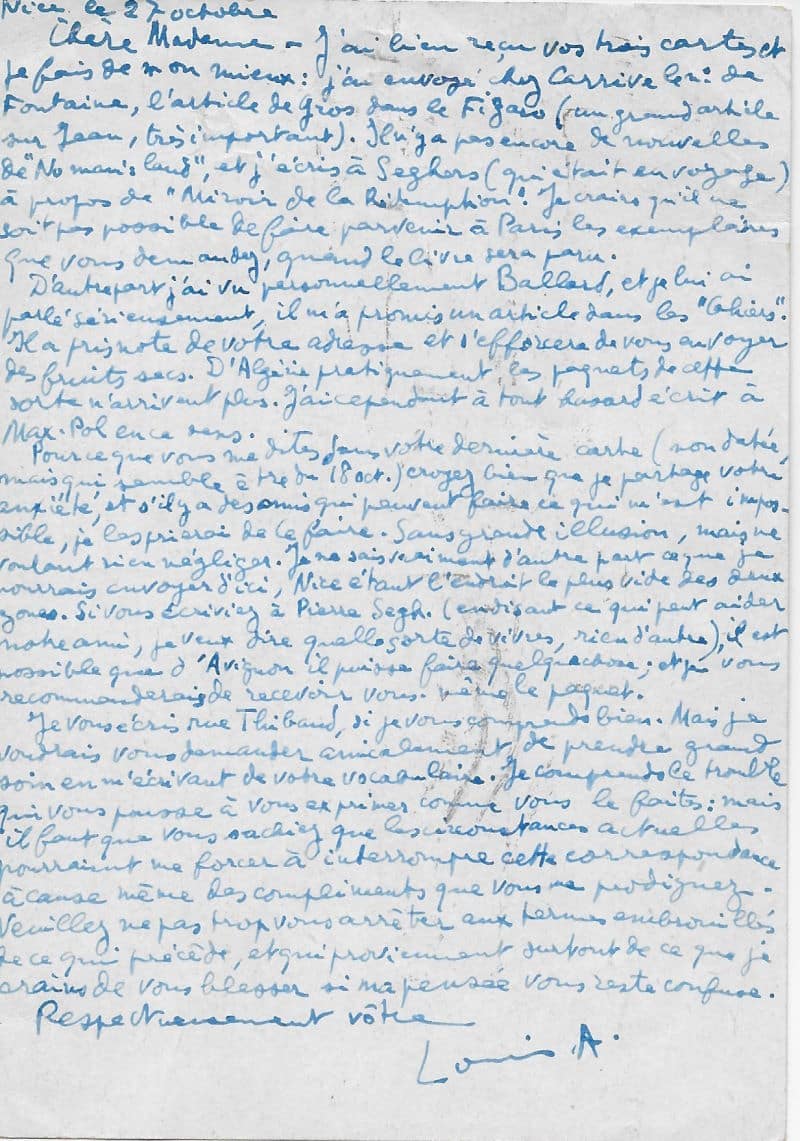 Nice le 27 octobre
Chère Madame – J'ai bien reçu vos trois cartes et
je fais de mon mieux : j'ai envoyé chez Carrive le n° de
Fontaine, l'article de Gros dans le Figaro (un grand article
sur Jean, très important). Il n'y a pas encore de nouvelles
de "No man's land", et j'écris à Seghers (qui était en voyage)
à propos de "Miroir de la Rédemption". Je crains qu'il ne
soit pas possible de faire parvenir à Paris les exemplaires
que vous demandez, quand le livre sera paru.
D'autre part j'ai vu personnellement Ballard, et je lui ai
parlé sérieusement, il m'a promis un article dans les "Cahiers".
Il a pris note de votre adresse et s'efforcera de vous envoyer
des fruits secs. D'Algérie pratiquement les paquets de cette
sorte n'arrivent plus. J'ai cependant à tout hasard écrit à
Max-Pol en ce sens.
Pour ce que vous me dites dans votre dernière carte (non datée,
mais qui semble être du 18 oct.) croyez bien que je partage votre
anxiété, et s'il y a des amis qui peuvent faire ce qui m'est impos-
sible, je les prierai de le faire. Sans grande illusion, mais ne
voulant rien négliger. Je ne sais vraiment d'autre part ce que je
pourrais envoyer d'ici, Nice étant l'endroit le plus vide des deux
zones. Si vous écriviez à Pierre Segh. (en disant ce qui peut aider
notre ami, je veux dire quelle sorte de vivres, rien d'autre), il est
possible que d'Avignon il puisse faire quelque chose ; et je vous
recommanderais de recevoir vous-même le paquet.
Je vous écris rue Thibaud, si je vous comprends bien. Mais je
voudrais vous demander amicalement de prendre grand
soin en m'écrivant de votre vocabulaire. Je comprends le trouble
qui vous pousse à vous exprimer comme vous le faites : mais
il faut que vous sachiez que les circonstances actuelles
pourraient me forcer à interrompre cette correspondance
à cause même des compliments que vous me prodiguez.
Veuillez ne pas trop vous arrêter aux termes embrouillés
de ce qui précède, et qui proviennent surtout de ce que je
crains de vous blesser si ma pensée vous reste confuse.
Respectueusement vôtre
Louis A.